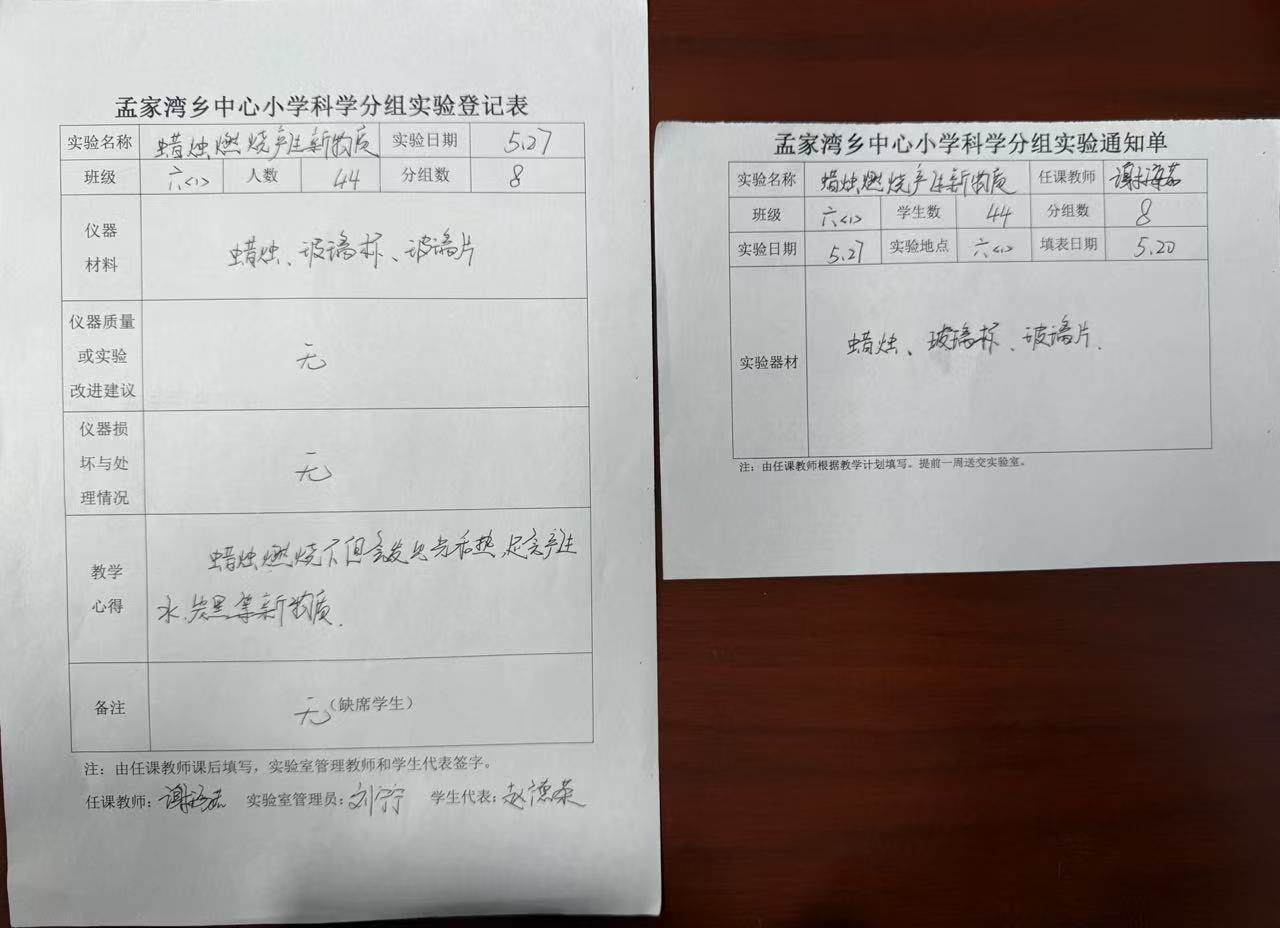 孟家湾乡中心小学科学分组实验登记表
实验名称 蜡烛燃烧产生新物质 实验日期 5.27
班级 六<1> 人数 44 分组数 8
仪器
材料
蜡烛、玻璃杯、玻璃片
仪器质量
或实验
改进建议
无
仪器损
坏与处
理情况
无
教学
心得
蜡烛燃烧不但会发出光和热,还会产生
水、炭黑等新物质.
备注
无(缺席学生)
注:由任课教师课后填写,实验室管理教师和学生代表签字。
任课教师: 实验室管理员:刘宁 学生代表:赵德荣
孟家湾乡中心小学科学分组实验通知单
实验名称 蜡烛燃烧产生新物质 任课教师
班级 六<1> 学生数 44 分组数 8
实验日期 5.27 实验地点 六<1> 填表日期 5.20
实验器材
蜡烛、玻璃杯、玻璃片.
注:由任课教师根据教学计划填写。提前一周送交实验室。